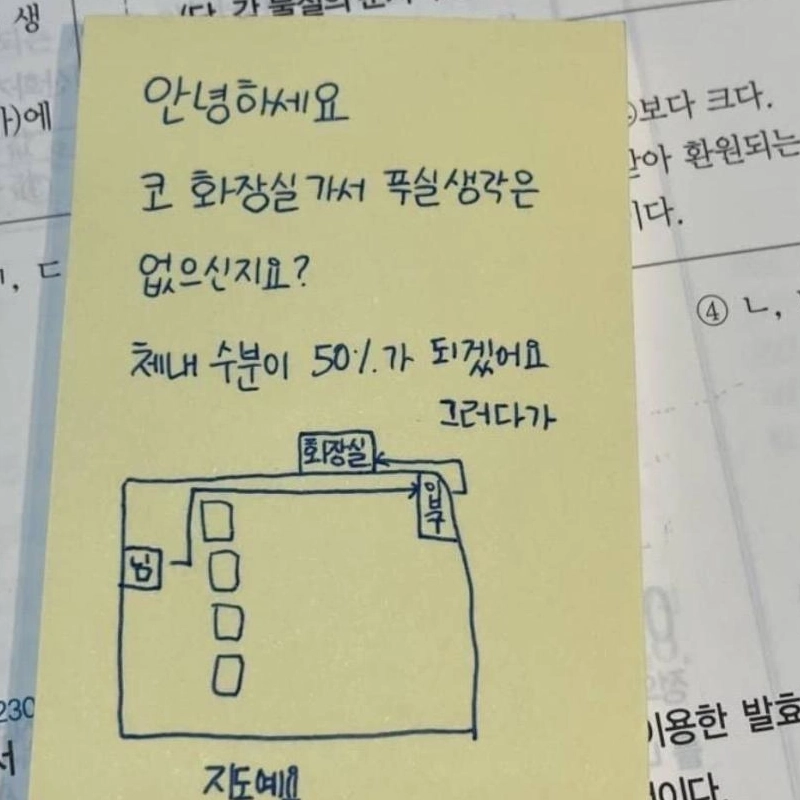 생
가)에
ㄷ
안녕하세요
코 화장실 가서 푸실생각은
없으신지요?
체내 수분이 50%가 되겠어요
그러다가
화장실
입구
님
지도예요
보다 크다.
받아 환원되는
이다.
④ ㄴ,
230
서
이용한 발효
이다